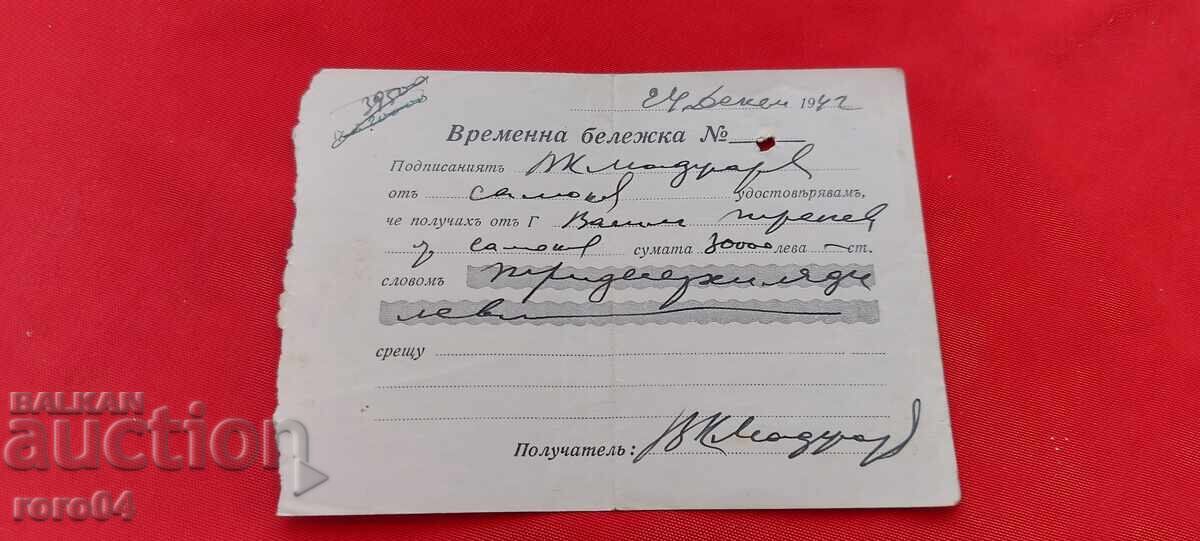 39500
24 Декем 1942
Временна бележка №
Подписаниятъ
отъ Самоков удостовѣрявамъ,
че получахъ отъ Г
Самоков сумата 30000 лева — ст.
словомъ тридесет хиляди
лева
срещу
Получатель:
BALKAN
auction
roro04